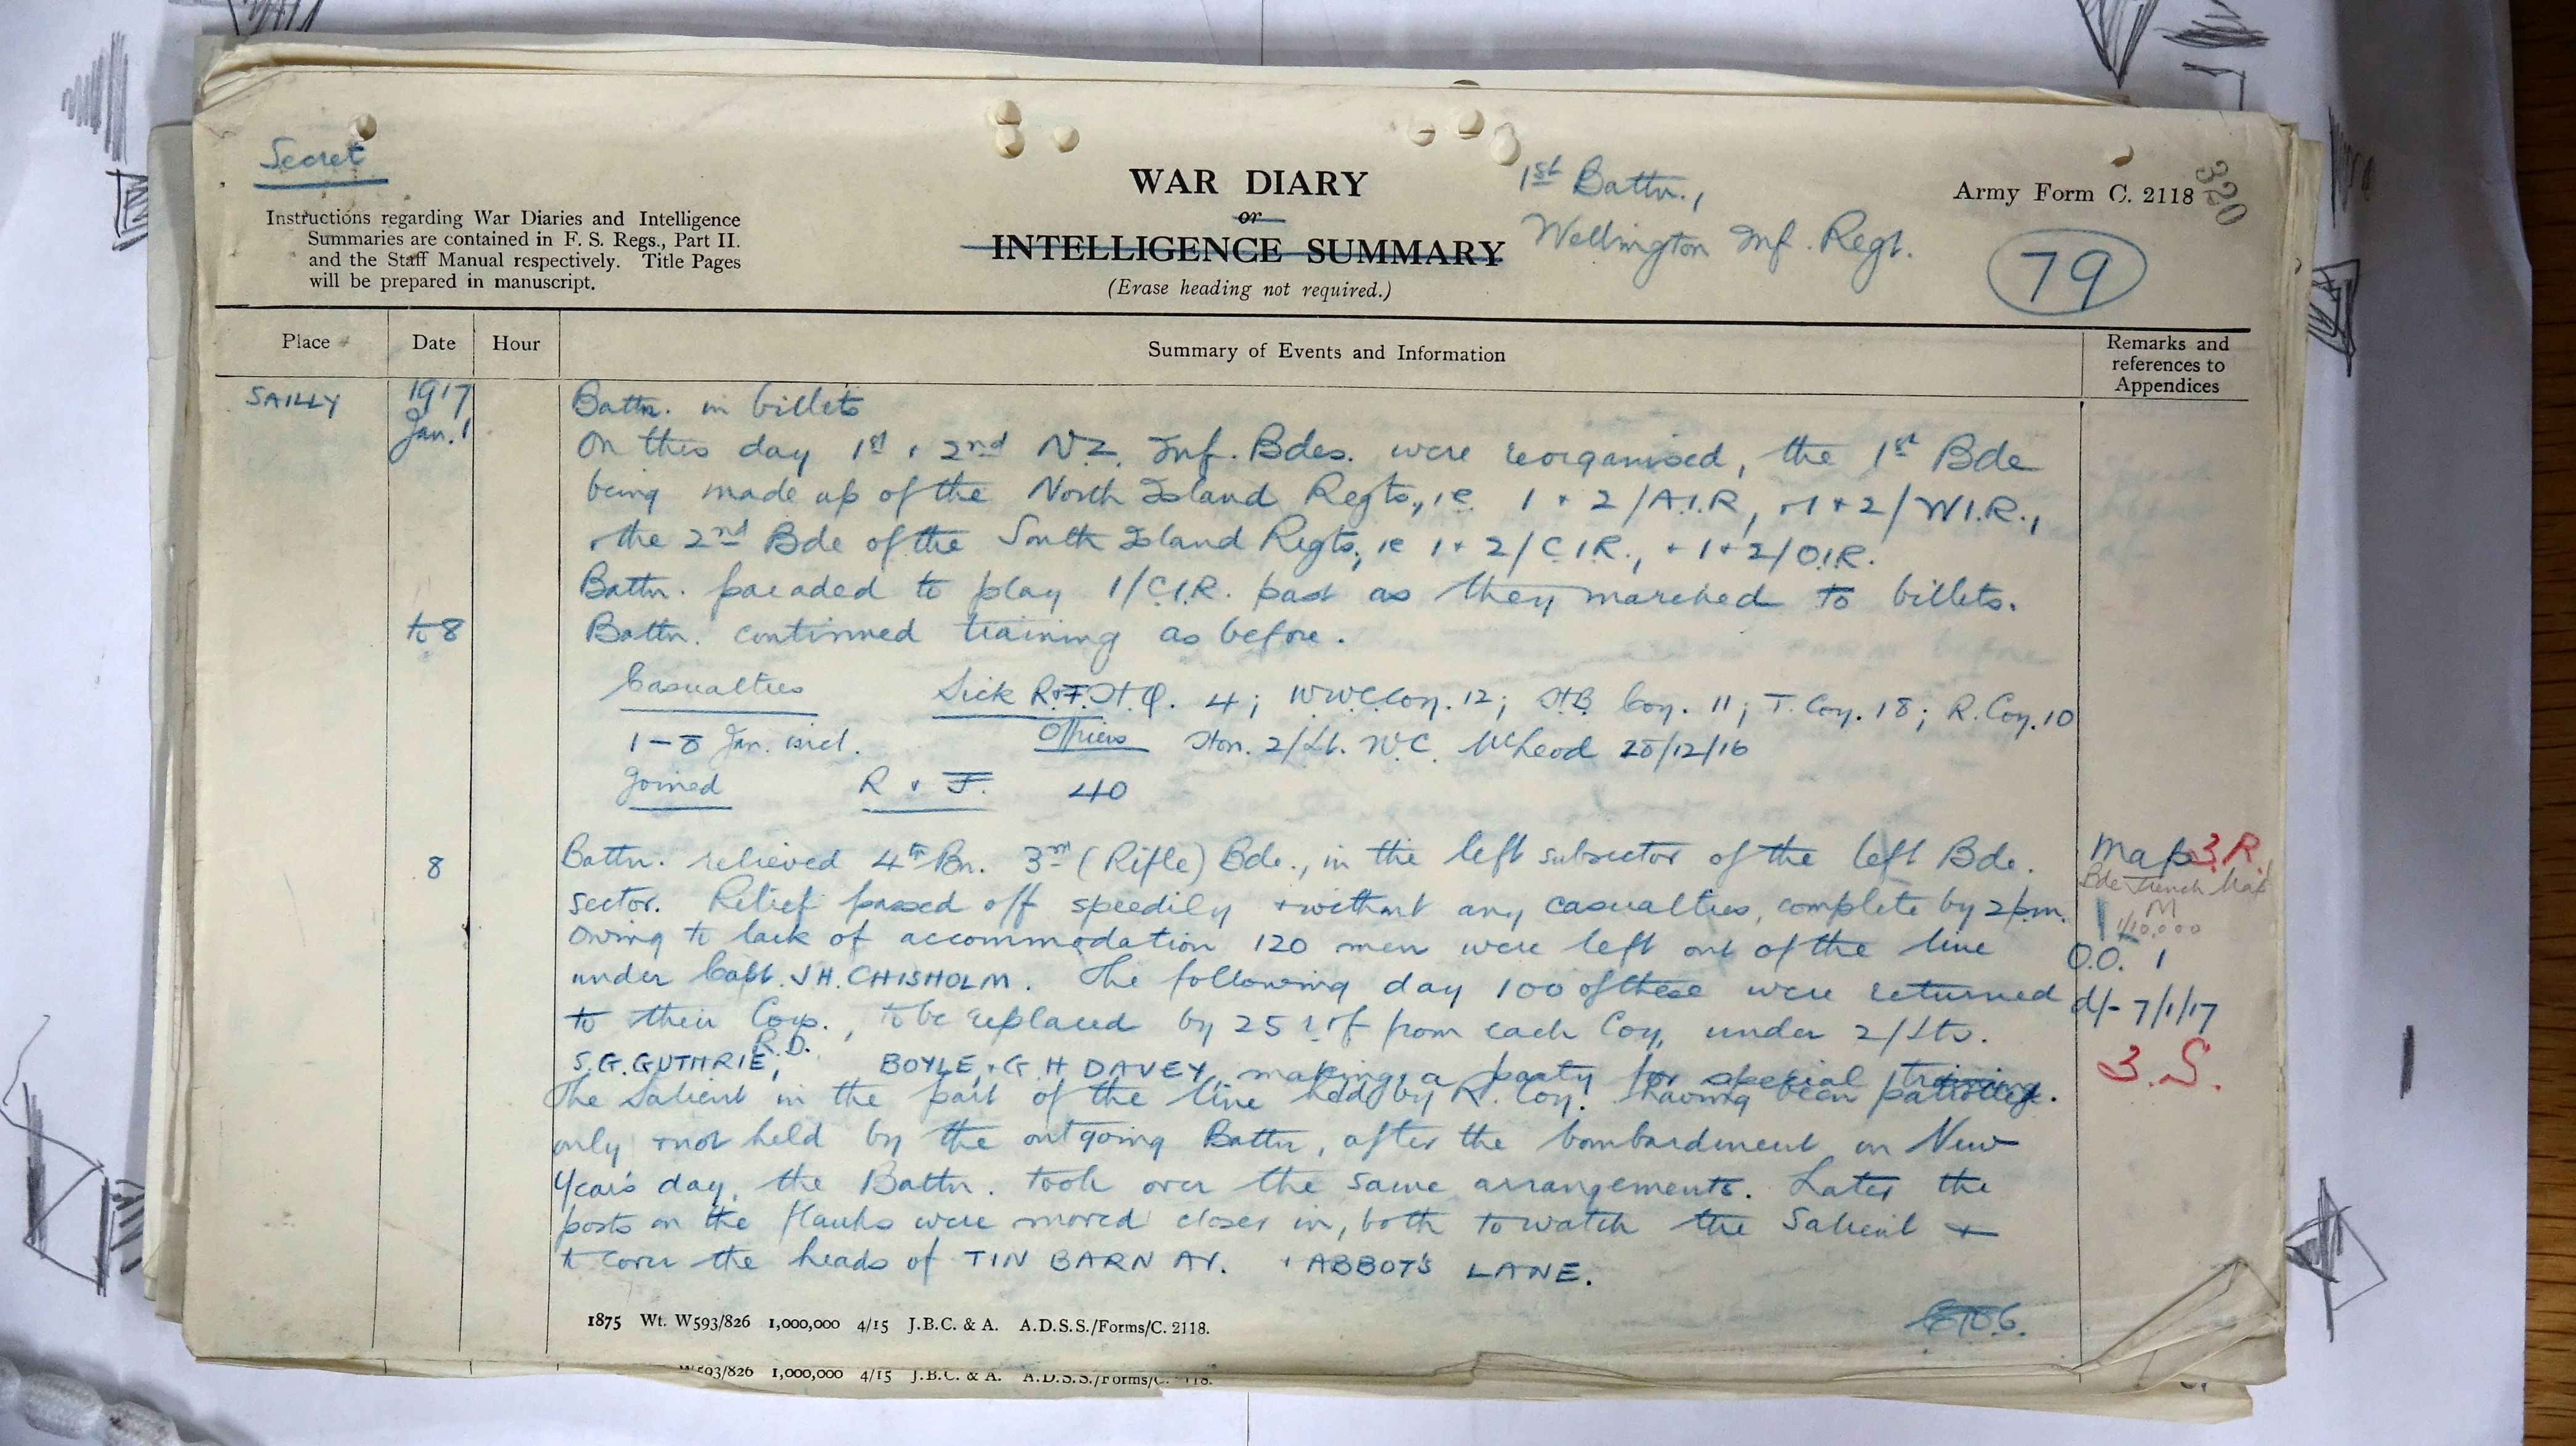 Secret
320
Instructions regarding War Diaries and Intelligence
Summaries are contained in F. S. Regs., Part II.
and the Staff Manual respectively. Title Pages
will be prepared in manuscript.
WAR DIARY
or
INTELLIGENCE SUMMARY
(Erase heading not required.)
1st Battn.,
Wellington Inf. Regt.
Army Form C. 2118
79
Place Date Hour Summary of Events and Information Remarks and
references to
Appendices
SAILLY 1917
Jan. 1
Battn. in billets
On this day 1st + 2nd N.Z. Inf. Bdes. were reorganised, the 1st Bde
being made up of the North Island Regts., ie 1 + 2/A.I.R, + 1 + 2/W.I.R.,
+ the 2nd Bde of the South Island Regts, ie 1 + 2/C.I.R., + 1 + 2/O.I.R.
Battn. paraded to play 1/C.I.R. past as they marched to billets.
to 8 Battn. continued training as before.
Casualties Sick R.+F. H.Q. 4; W.W.C. Coy. 12; H.B. Coy. 11; T. Coy. 18; R. Coy. 10
1–8 Jan. incl. Officers Hon. 2/Lt. W.C. McLeod 28/12/16
Joined R + F. 40
8 Battn. relieved 4th Bn. 3rd (Rifle) Bde., in the left subsector of the left Bde.
sector. Relief passed off speedily + without any casualties, complete by 2 p.m.
Owing to lack of accommodation 120 men were left out of the line
under Capt. J.H. CHISHOLM. The following day 100 of these were returned
to their Coys., to be replaced by 25 r + f from each Coy, under 2/Lts.
S.G. GUTHRIE, R.D. BOYLE, + G H DAVEY, making a party for special training.
The Salient in the part of the line held by R. Coy. having been patrolled
only + not held by the outgoing Battn, after the bombardment on New
Year's day, the Battn. took over the same arrangements. Later the
posts on the flanks were moved closer in, both to watch the Salient +
to cover the heads of TIN BARN AV. + ABBOT'S LANE.
Map 3.R.
Bde Trench Map
1/10,000
O.O. 1
d/- 7/1/17
3.S.
1875 Wt. W593/826 1,000,000 4/15 J.B.C. & A. A.D.S.S./Forms/C. 2118.
W593/826 1,000,000 4/15 J.B.C. & A. A.D.S.S./Forms/C. 2118.